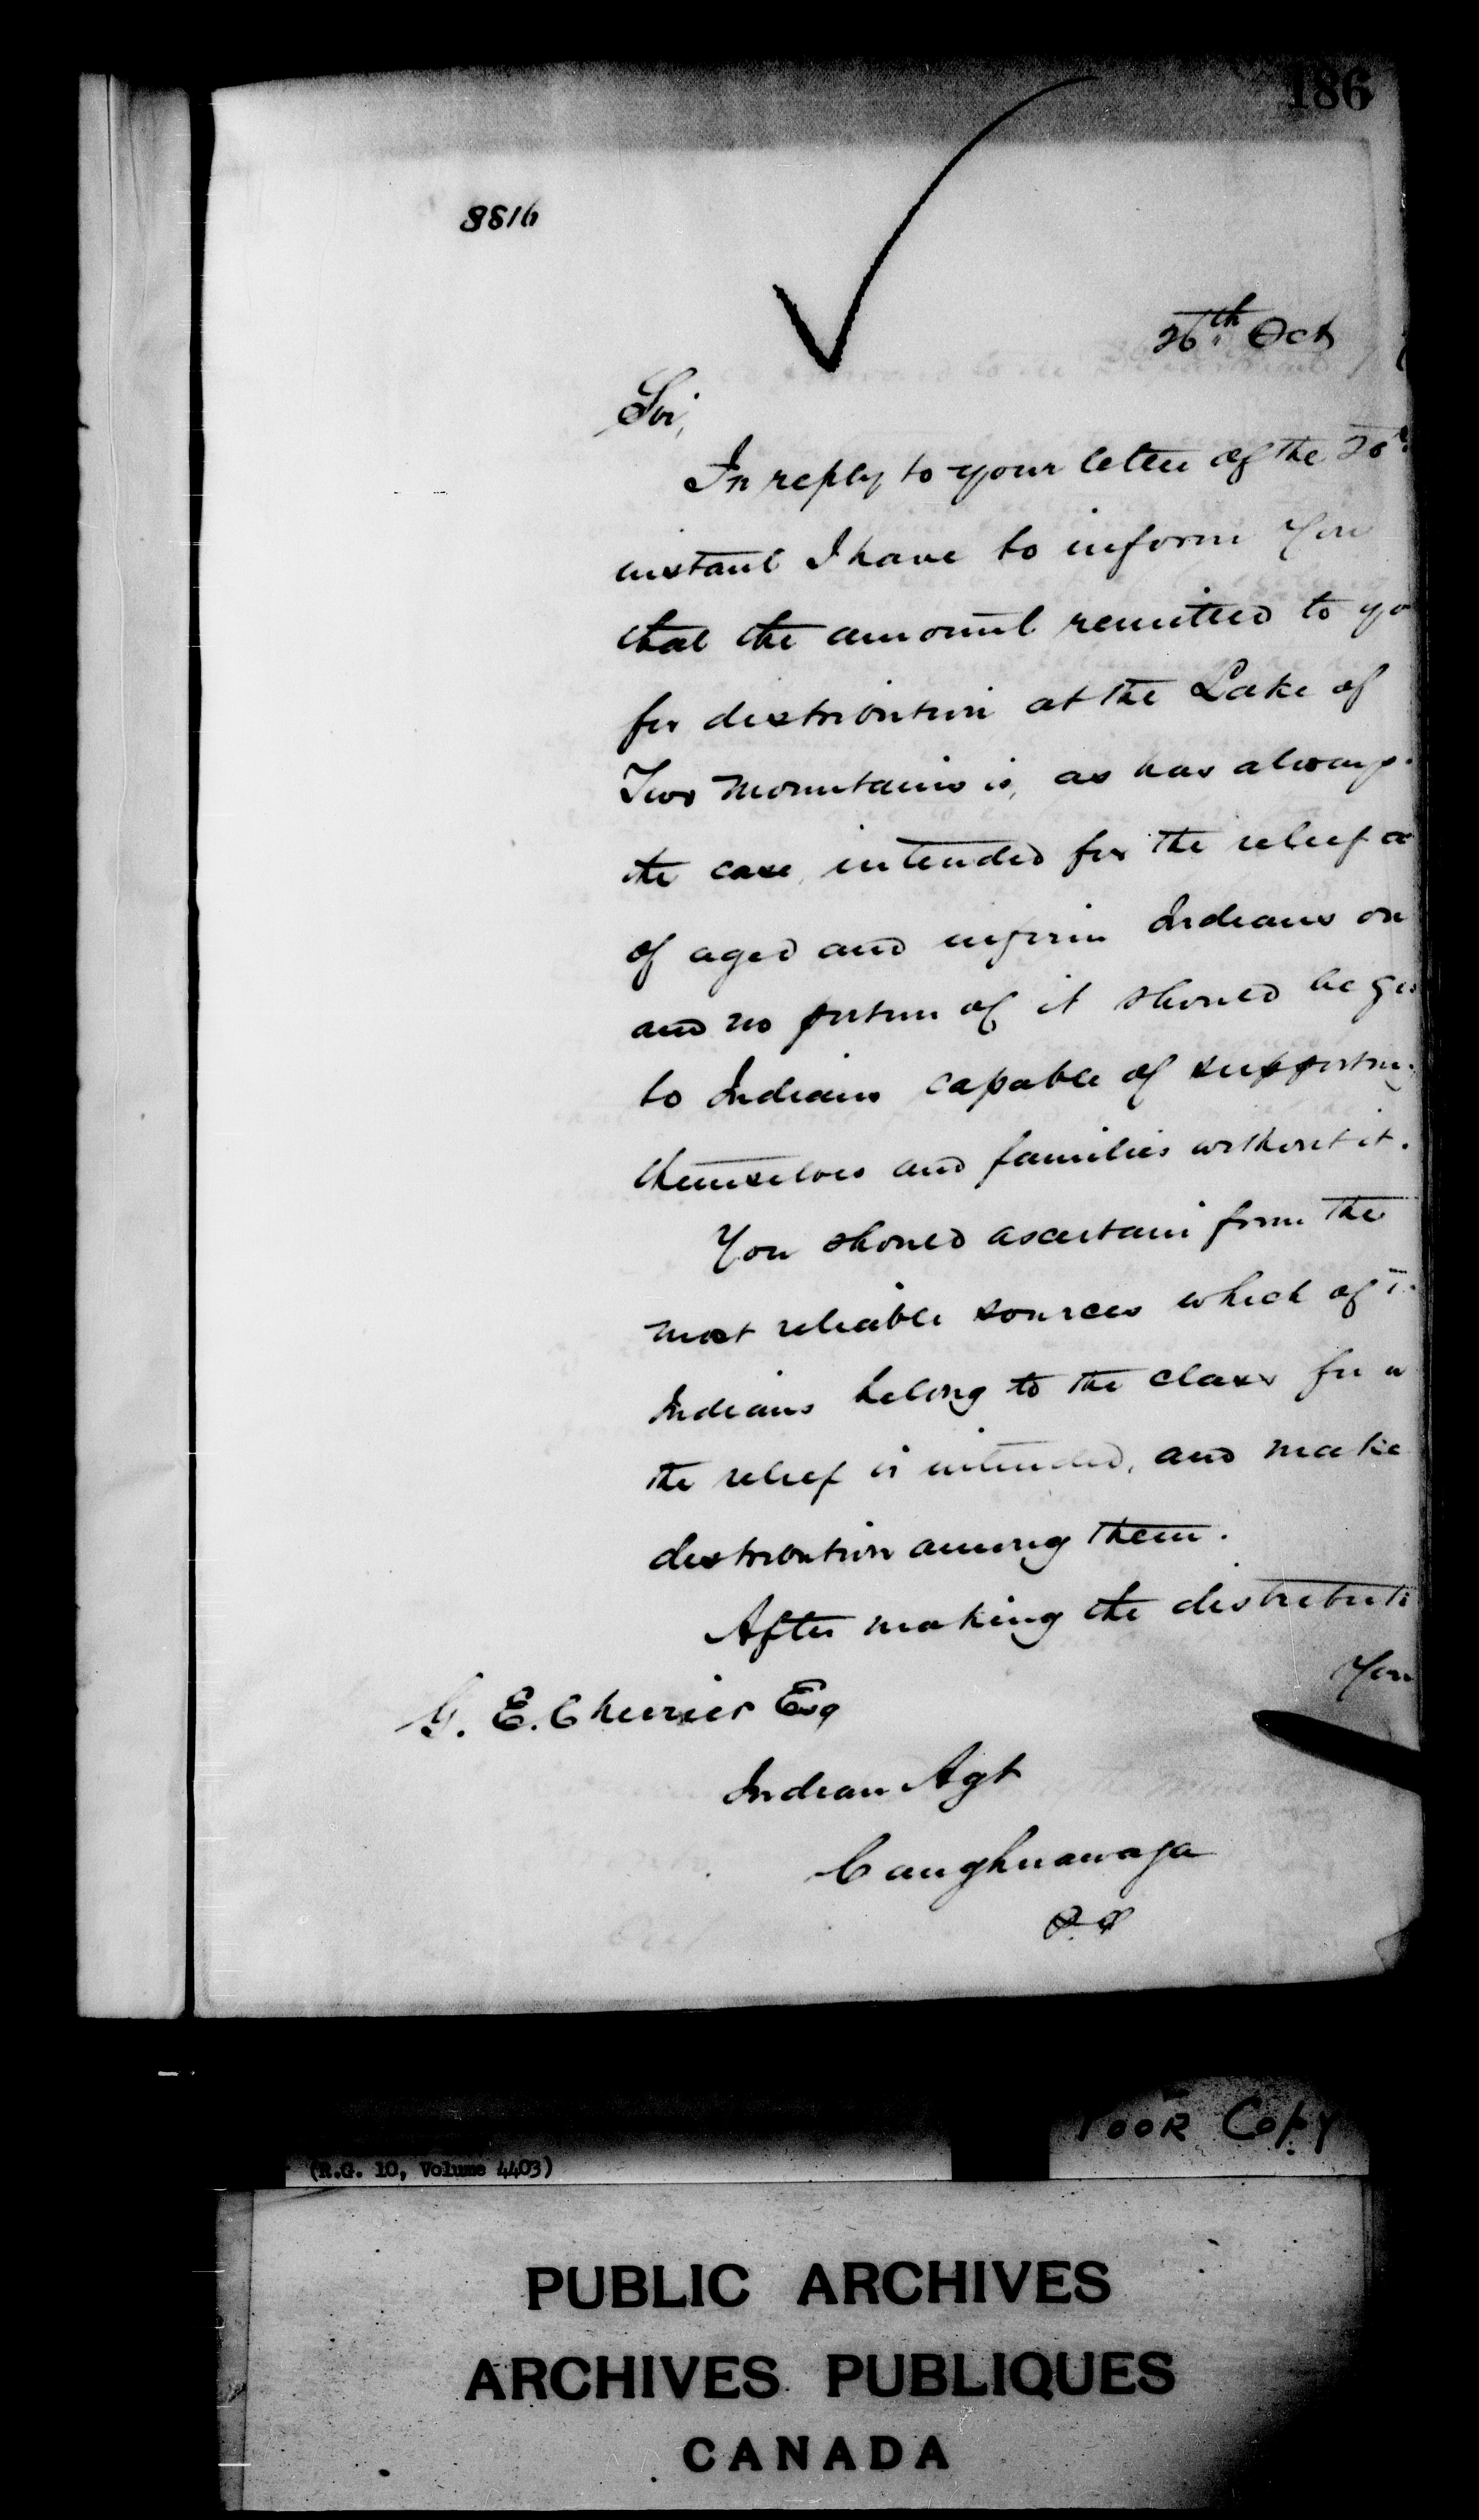 186
8816
26th Oct
Sir,
In reply to your letter of the 20
instant I have to inform you
that the amount remitted to yo
for distribution at the Lake of
Two Mountains is, as has always
the case, intended for the relief
of aged and infirm Indians on
and no portion of it should be gi
to Indians capable of supporting
themselves and families without it.
You should ascertain from the
most reliable sources which of
Indians belong to the class for w
the relief is intended, and make
distribution among them.
After making the distributi
You
G. E. Cherrier Esq
Indian Agt
Caughnawaga
P.Q
Poor Copy
(R.G. 10, Volume 4403)
PUBLIC ARCHIVES
ARCHIVES PUBLIQUES
CANADA